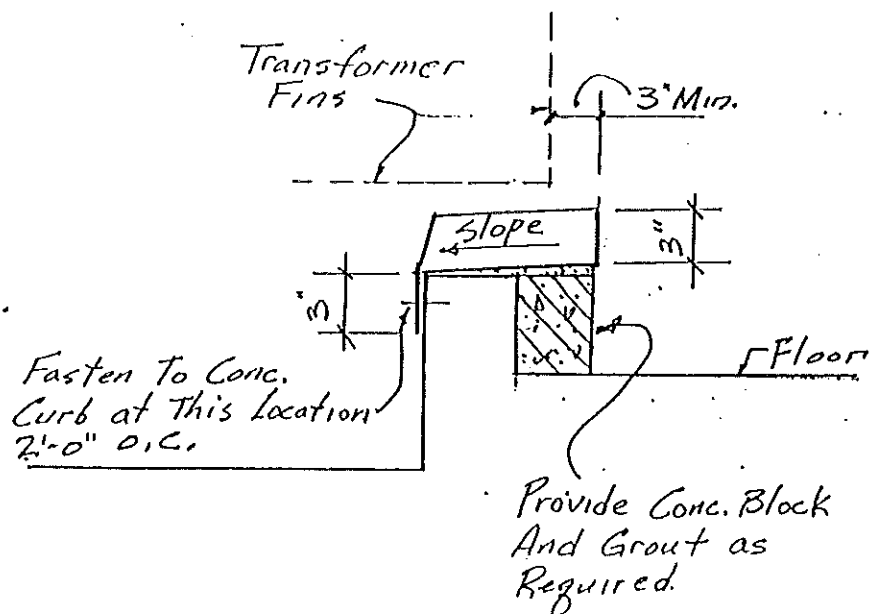 Transformer
Fins
3" Min.
Slope
3"
3"
Fasten To Conc.
Curb at This Location
2'-0" O.C.
Floor
Provide Conc. Block
And Grout as
Required.